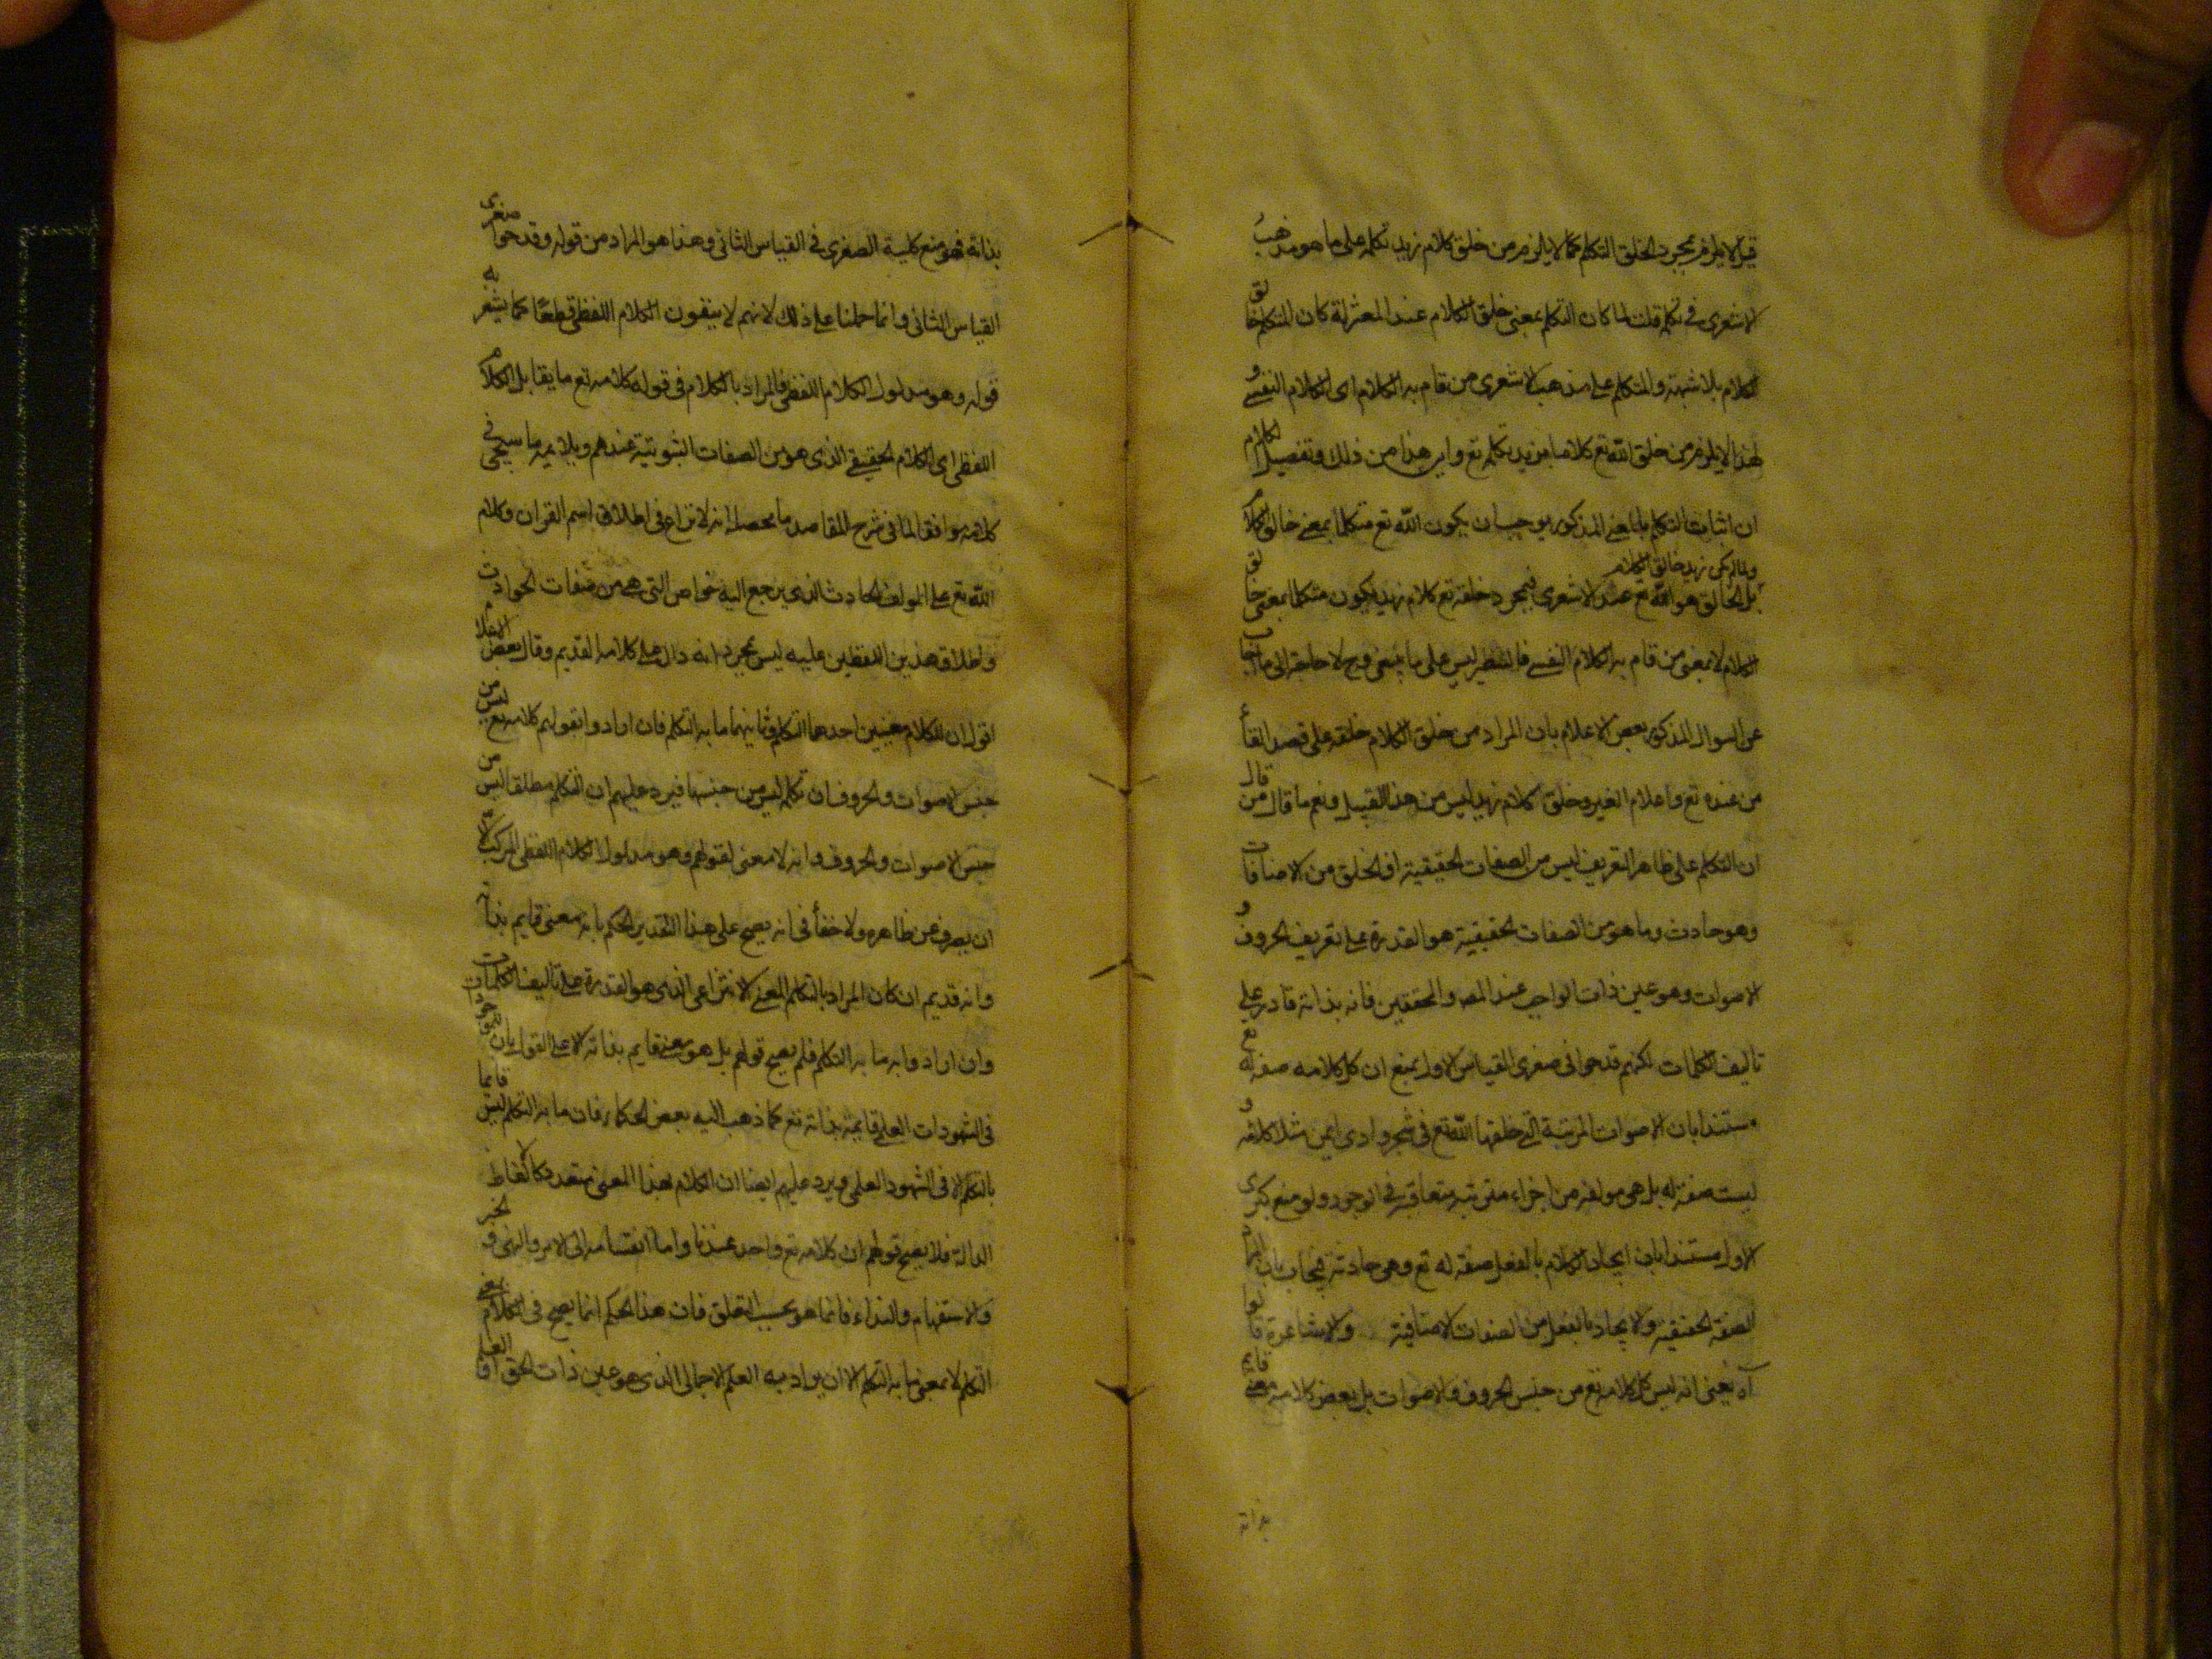 قيل لا يلزم بمجرد الخلق التكلم كما لا يلزم من خلق كلام زيد تكلمه على ما هو مذهب
الاشعرى فى تكلم قلت لما كان التكلم بمعنى خلق الكلام عند المعتزلة كان المتكلم خالق
الكلام بلا شبهة والمتكلم على مذهب الاشعرى من قام به الكلام اى الكلام النفسى و
لهذا لا يلزم من خلق الله تع كلاما لزيد تكلمه تع واين هذا من ذلك وتفصيل الكلام
ان اثبات التكلم بالمعنى المذكور يوجب ان يكون الله تع متكلما بمعنى خالق الكلام
ولما لم يكن زيد خالق الكلام
بل الخالق هو الله تع عند الاشعرى فبمجرد خلقه تع كلام زيد يكون متكلما بمعنى خالق
الكلام لا بمعنى من قام به الكلام النفسى فالتنظير ليس على ما ينبغى وح لا حاجة الى ما اجاب
عن السوال المذكور بعض الاعلام بان المراد من خلق الكلام خلقه على قصد القاء
من عنده تع واعلام الغير وخلق كلام زيد ليس من هذا القبيل ونعم ما قال من قال
ان التكلم على ظاهر التعريف ليس من الصفات الحقيقية اذ الخلق من الاضافات
وهو حادث وما هو من الصفات الحقيقية هو القدرة على تعريف الحروف و
الاصوات وهو عين ذات الواجب عند المص والمحققين فانه بذاته قادر على
تاليف الكلمات لكنهم قدحوا فى صغرى القياس الاول بمنع ان كل كلامه صفة له تع
مستندا بان الاصوات المرتبة التى خلقها الله تع فى شجر وادى ايمن مثلا كلامه و
ليست صفة له بل هى مولفة من اجزاء مترتبة متعاقبة فى الوجود ولو منع كبرى
الاول مستندا بان ايجاد الكلام بالفعل صفة له تع وهى حادثة يجاب بان المراد
الصفة الحقيقية والايجاد بالفعل من الصفات الاضافية والاشاعرة قالوا
آه يعنى انه ليس كل كلامه تع من جنس الحروف والاصوات بل بعض كلامه معنى قايم
بذاته
بذاته فهو منع كلية الصغرى فى القياس الثانى وهذا هو المراد من قوله وقدحوا صغرى
القياس الثانى وانما حملنا على ذلك لانهم لا ينفون الكلام اللفظى قطعا كما يشعر به
قوله وهو مدلول الكلام اللفظى فالمراد بالكلام فى قوله كلامه تع ما يقابل الكلام
اللفظى اى الكلام الحقيقى الذى هو من الصفات الثبوتية عندهم ويلايمه ما سيجى فى
كلامه موافقا لما فى شرح المقاصد ما محصله انه لا نزاع فى اطلاق اسم القران وكلام
الله تع على المولف الحادث الذى يرجع اليه خواص التى هى من صفات الحوادث
واطلاق هذين اللفظين عليه ليس بمجرد انه دال على كلامه القديم وقال بعض الاعلام
اقول ان للكلام معنيين احدهما التكلم وثانيهما ما به التكلم فان ارادوا بقولهم كلامه تع ليس من
جنس الاصوات والحروف ان تكلمه ليس من جنسها فيرد عليهم ان التكلم مطلقا ليس من
جنس الاصوات والحروف وانه لا معنى لقولهم وهو مدلول الكلام اللفظى المركب الا
ان يصرف عن ظاهره ولا خفأ فى انه يصح على هذا التقدير الحكم بانه معنى قايم بذاته
وانه قديم ان كان المراد بالتكلم المعنى الانتزاعى الذى هو القدرة على تاليف الكلمات
وان ارادوا به ما به التكلم فلم يصح قولهم بل هو معنى قايم بذاته الا على القول بان الموجود
فى الشهودات العلمى قايمة بذاته تع كما ذهب اليه بعض الحكماء فان ما به التكلم ليس قايما
بالتكلم الا فى الشهود العلمى ويرد عليهم ايضا ان الكلام بهذا المعنى متعدد كالالفاظ
الدالة فلا يصح قولهم ان كلامه تع واحد عندنا واما انقسامه الى الامر والنهى والخبر
والاستفهام والنداء فانما هو بحسب التعلق فان هذا الحكم انما يصح فى الكلام بمعنى
التكلم لا بمعنى ما به التكلم الا ان يراد به العلم الاجمالى الذى هو عين ذات الحق او العلم